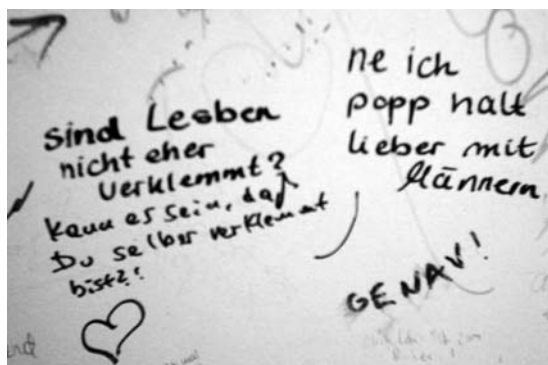 sind Lesben
nicht eher
verklemmt?
kann es sein, daß
Du selber verklemmt
bist?!
ne ich
popp halt
lieber mit
Männern
GENAU!